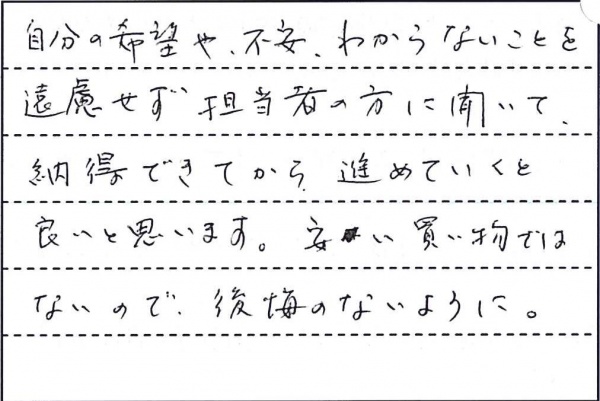 自分の希望や、不安、わからないことを
遠慮せず担当者の方に聞いて、
納得できてから、進めていくと
良いと思います。安い買い物では
ないので、後悔のないように。